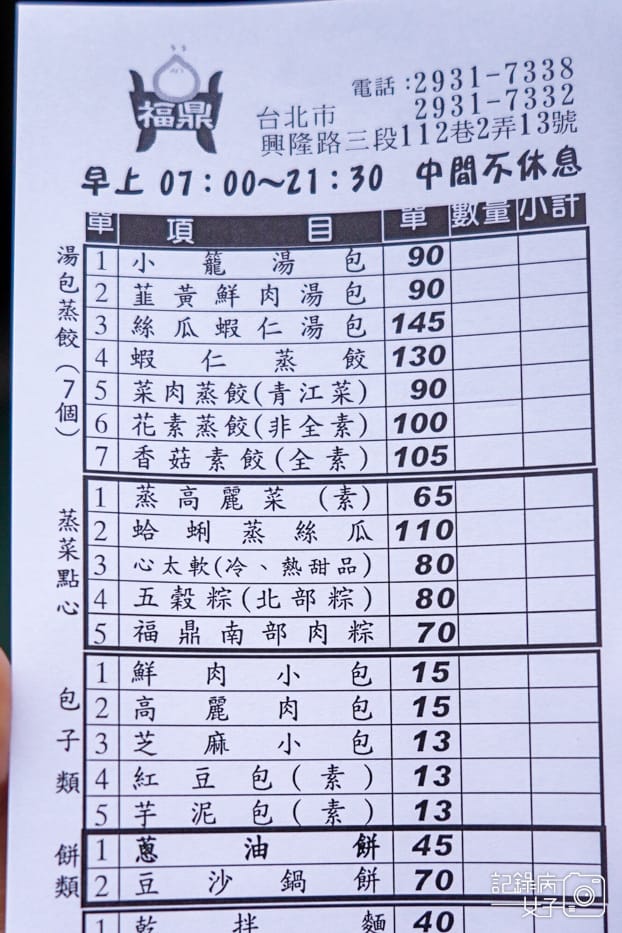 福鼎
電話：2931-7338
2931-7332
台北市
興隆路三段112巷2弄13號
早上 07：00～21：30 中間不休息
單 項目 單 數量 小計
湯包蒸餃（7個）
1 小籠湯包 90
2 韮黃鮮肉湯包 90
3 絲瓜蝦仁湯包 145
4 蝦仁蒸餃 130
5 菜肉蒸餃(青江菜) 90
6 花素蒸餃(非全素) 100
7 香菇素餃(全素) 105
蒸菜點心
1 蒸高麗菜(素) 65
2 蛤蜊蒸絲瓜 110
3 心太軟(冷、熱甜品) 80
4 五穀粽(北部粽) 80
5 福鼎南部肉粽 70
包子類
1 鮮肉小包 15
2 高麗肉包 15
3 芝麻小包 13
4 紅豆包(素) 13
5 芋泥包(素) 13
餅類
1 蔥油餅 45
2 豆沙鍋餅 70
1 乾拌麵 40
記錄病
女子